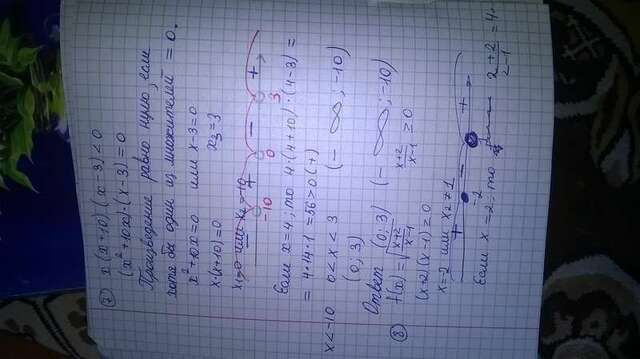 ⑦ x(x+10)(x-3)<0
(x²+10x)·(x-3)=0
Произведение равно нулю, если
хотя бы один из множителей = 0.
x²+10x=0 или x-3=0
x(x+10)=0 x₃=3
x₁=0 или x₂=-10
- + - +
-10 0 3
Если x=4; то 4·(4+10)·(4-3)=
=4·14·1=56>0 (+)
x<-10 0<x<3 (-∞;-10)
(0;3)
Ответ (0;3) (-∞;-10)
⑧ f(x)=√x+2/x-1 x+2/x-1 ≥0
(x+2)(x-1)≥0
x=-2 или x₂≠1
+ - +
-2
Если x=2-то 2+2/2-1=4.